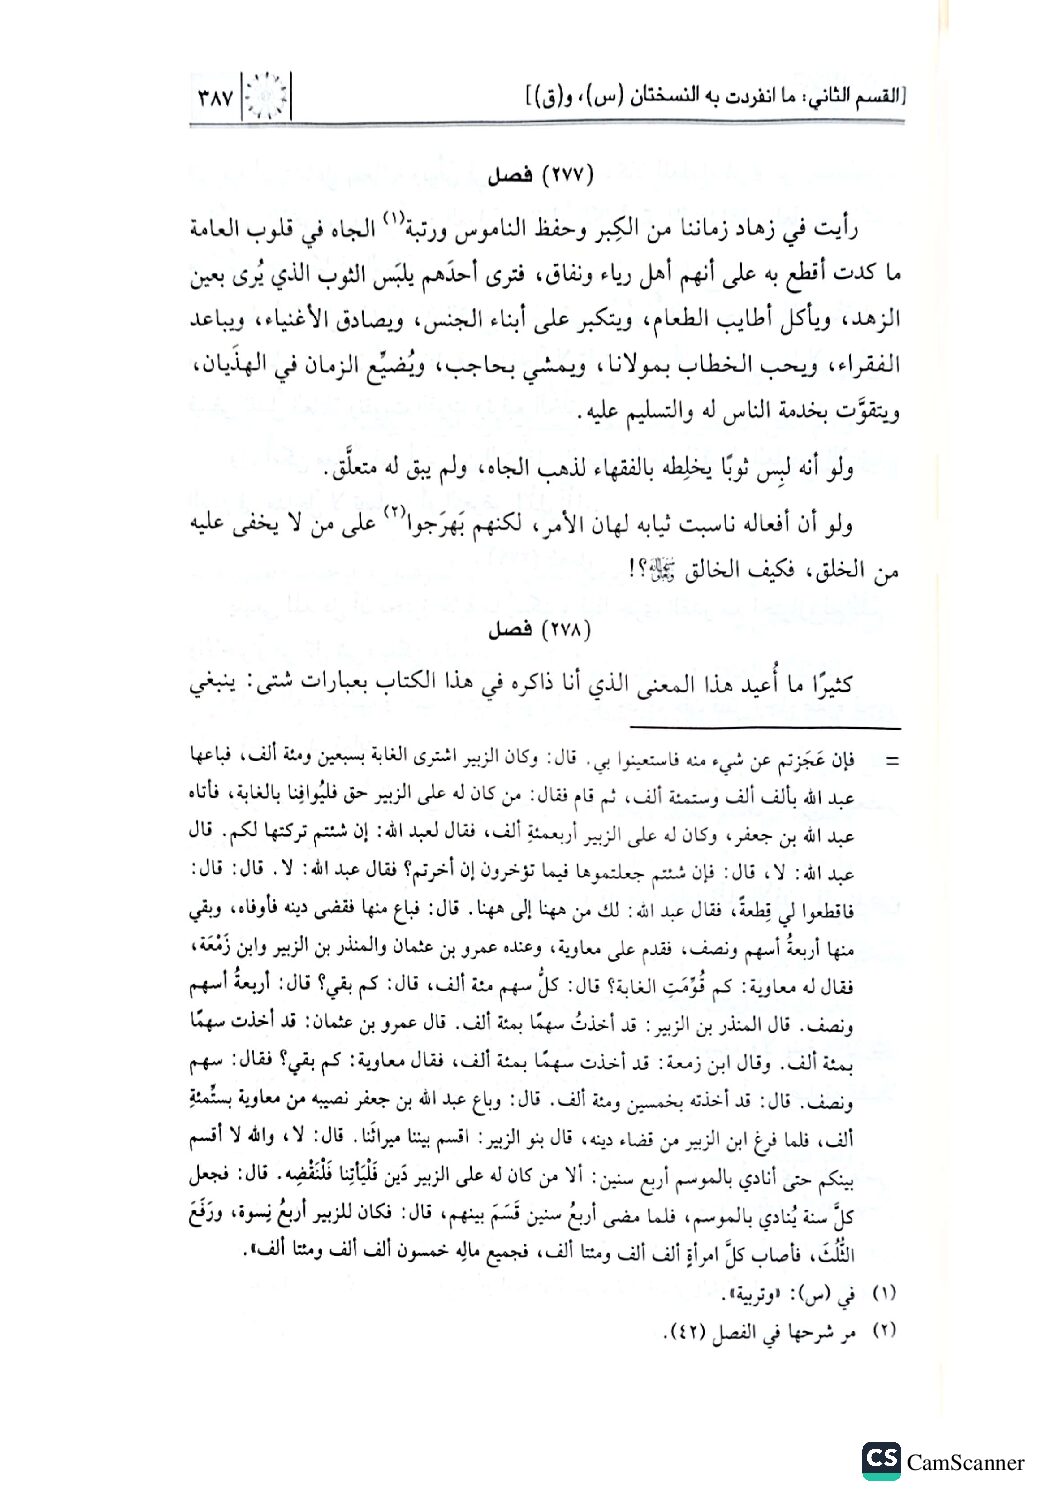 [القسم الثاني: ما انفردت به النسختان (س)، و(ق)] ٣٨٧
(٢٧٧) فصل
رأيت في زهاد زماننا من الكِبر وحفظ الناموس ورتبة(١) الجاه في قلوب العامة
ما كدت أقطع به على أنهم أهل رياء ونفاق، فترى أحدَهم يلبَس الثوب الذي يُرى بعين
الزهد، ويأكل أطايب الطعام، ويتكبر على أبناء الجنس، ويصادق الأغنياء، ويباعد
الفقراء، ويحب الخطاب بمولانا، ويمشي بحاجب، ويُضيِّع الزمان في الهذَيان،
ويتقوَّت بخدمة الناس له والتسليم عليه.
ولو أنه لبِس ثوبًا يخلِطه بالفقهاء لذهب الجاه، ولم يبق له متعلَّق.
ولو أن أفعاله ناسبت ثيابه لهان الأمر، لكنهم بَهرَجوا(٢) على من لا يخفى عليه
من الخلق، فكيف الخالق ؟!
(٢٧٨) فصل
كثيرًا ما أُعيد هذا المعنى الذي أنا ذاكره في هذا الكتاب بعبارات شتى: ينبغي
= فإن عَجَزتم عن شيء منه فاستعينوا بي. قال: وكان الزبير اشترى الغابة بسبعين ومئة ألف، فباعها
عبد الله بألف ألف وستمئة ألف، ثم قام فقال: من كان له على الزبير حق فليُوافِنا بالغابة، فأتاه
عبد الله بن جعفر، وكان له على الزبير أربعمئةِ ألف، فقال لعبد الله: إن شئتم تركتها لكم. قال
عبد الله: لا، قال: فإن شئتم جعلتموها فيما تؤخرون إن أخرتم؟ فقال عبد الله: لا. قال: قال:
فاقطعوا لي قِطعةً، فقال عبد الله: لك من ههنا إلى ههنا. قال: فباع منها فقضى دينه فأوفاه، وبقي
منها أربعةُ أسهم ونصف، فقدم على معاوية، وعنده عمرو بن عثمان والمنذر بن الزبير وابن زَمْعَة،
فقال له معاوية: كم قُوِّمَتِ الغابة؟ قال: كلُّ سهم مئة ألف، قال: كم بقي؟ قال: أربعةُ أسهم
ونصف. قال المنذر بن الزبير: قد أخذتُ سهمًا بمئة ألف. قال عمرو بن عثمان: قد أخذت سهمًا
بمئة ألف. وقال ابن زمعة: قد أخذت سهمًا بمئة ألف، فقال معاوية: كم بقي؟ فقال: سهم
ونصف. قال: قد أخذته بخمسين ومئة ألف. قال: وباع عبد الله بن جعفر نصيبه من معاوية بستِّمئةِ
ألف، فلما فرغ ابن الزبير من قضاء دينه، قال بنو الزبير: اقسم بيننا ميراثَنا. قال: لا، والله لا أقسم
بينكم حتى أنادي بالموسم أربع سنين: ألا من كان له على الزبير دَين فَلْيَأتِنا فَلْنَقْضِه. قال: فجعل
كلَّ سنة يُنادي بالموسم، فلما مضى أربعُ سنين قَسَمَ بينهم، قال: فكان للزبير أربعُ نِسوة، ورَفَعَ
الثُّلُثَ، فأصاب كلَّ امرأةٍ ألف ألف ومئتا ألف، فجميع مالِه خمسون ألف ألف ومئتا ألف».
(١) في (س): «وتربية».
(٢) مر شرحها في الفصل (٤٢).
CS CamScanner